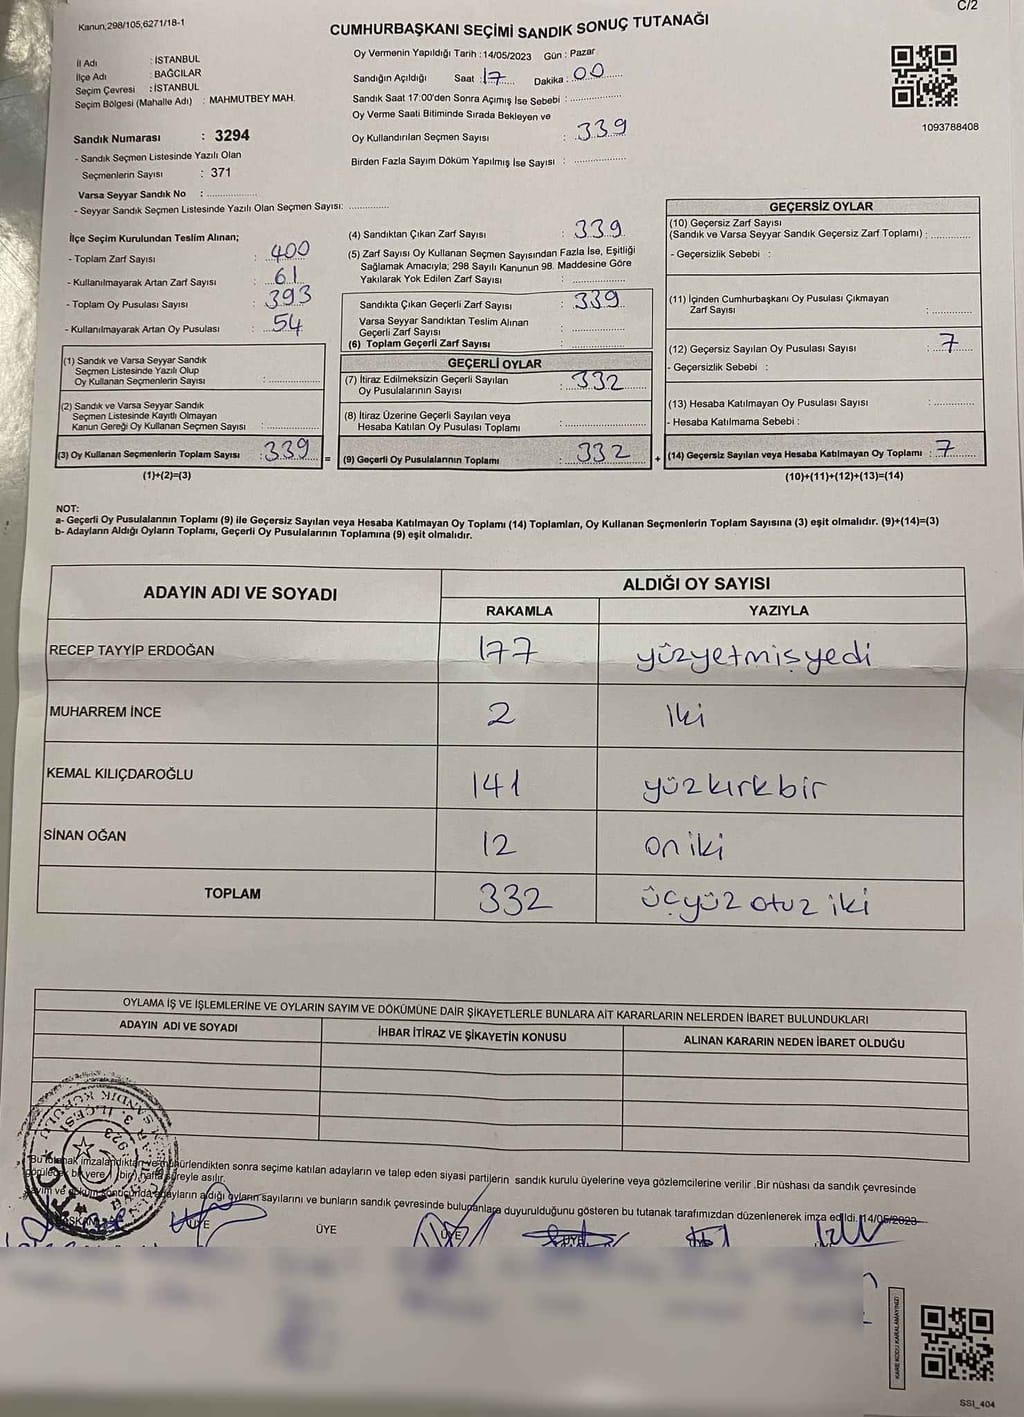 C/2
Kanun,298/105,6271/18-1
CUMHURBAŞKANI SEÇİMİ SANDIK SONUÇ TUTANAĞI
İl Adı : İSTANBUL
İlçe Adı : BAĞCILAR
Seçim Çevresi : İSTANBUL
Seçim Bölgesi (Mahalle Adı) : MAHMUTBEY MAH.
Sandık Numarası : 3294
- Sandık Seçmen Listesinde Yazılı Olan
Seçmenlerin Sayısı : 371
Varsa Seyyar Sandık No : ...............
- Seyyar Sandık Seçmen Listesinde Yazılı Olan Seçmen Sayısı: ............
Oy Vermenin Yapıldığı Tarih : 14/05/2023 Gün : Pazar
Sandığın Açıldığı Saat : 17 Dakika : 00
Sandık Saat 17:00'den Sonra Açımış İse Sebebi : ...............
Oy Verme Saati Bitiminde Sırada Bekleyen ve
Oy Kullandırılan Seçmen Sayısı : 339
Birden Fazla Sayım Döküm Yapılmış İse Sayısı : ...............
1093788408
İlçe Seçim Kurulundan Teslim Alınan;
- Toplam Zarf Sayısı : 400
- Kullanılmayarak Artan Zarf Sayısı : 61
- Toplam Oy Pusulası Sayısı : 393
- Kullanılmayarak Artan Oy Pusulası : 54
(1) Sandık ve Varsa Seyyar Sandık
Seçmen Listesinde Yazılı Olup
Oy Kullanan Seçmenlerin Sayısı : ...............
(2) Sandık ve Varsa Seyyar Sandık
Seçmen Listesinde Kayıtlı Olmayan
Kanun Gereği Oy Kullanan Seçmen Sayısı : ...............
(3) Oy Kullanan Seçmenlerin Toplam Sayısı : 339
(1)+(2)=(3)
=
(4) Sandıktan Çıkan Zarf Sayısı : 339
(5) Zarf Sayısı Oy Kullanan Seçmen Sayısından Fazla İse, Eşitliği
Sağlamak Amacıyla; 298 Sayılı Kanunun 98. Maddesine Göre
Yakılarak Yok Edilen Zarf Sayısı : ...............
Sandıkta Çıkan Geçerli Zarf Sayısı : 339
Varsa Seyyar Sandıktan Teslim Alınan
Geçerli Zarf Sayısı : ...............
(6) Toplam Geçerli Zarf Sayısı : ...............
GEÇERLİ OYLAR
(7) İtiraz Edilmeksizin Geçerli Sayılan
Oy Pusulalarının Sayısı : 332
(8) İtiraz Üzerine Geçerli Sayılan veya
Hesaba Katılan Oy Pusulası Toplamı : ...............
(9) Geçerli Oy Pusulalarının Toplamı : 332
+
GEÇERSİZ OYLAR
(10) Geçersiz Zarf Sayısı
(Sandık ve Varsa Seyyar Sandık Geçersiz Zarf Toplamı) : ............
- Geçersizlik Sebebi :
(11) İçinden Cumhurbaşkanı Oy Pusulası Çıkmayan
Zarf Sayısı : ............
(12) Geçersiz Sayılan Oy Pusulası Sayısı : 7
- Geçersizlik Sebebi :
(13) Hesaba Katılmayan Oy Pusulası Sayısı : ............
- Hesaba Katılmama Sebebi :
(14) Geçersiz Sayılan veya Hesaba Katılmayan Oy Toplamı : 7
(10)+(11)+(12)+(13)=(14)
NOT:
a- Geçerli Oy Pusulalarının Toplamı (9) ile Geçersiz Sayılan veya Hesaba Katılmayan Oy Toplamı (14) Toplamları, Oy Kullanan Seçmenlerin Toplam Sayısına (3) eşit olmalıdır. (9)+(14)=(3)
b- Adayların Aldığı Oyların Toplamı, Geçerli Oy Pusulalarının Toplamına (9) eşit olmalıdır.
ADAYIN ADI VE SOYADI
ALDIĞI OY SAYISI
RAKAMLA YAZIYLA
RECEP TAYYİP ERDOĞAN 177 yüzyetmişyedi
MUHARREM İNCE 2 iki
KEMAL KILIÇDAROĞLU 141 yüzkırkbir
SİNAN OĞAN 12 oniki
TOPLAM 332 üçyüz otuz iki
OYLAMA İŞ VE İŞLEMLERİNE VE OYLARIN SAYIM VE DÖKÜMÜNE DAİR ŞİKAYETLERLE BUNLARA AİT KARARLARIN NELERDEN İBARET BULUNDUKLARI
ADAYIN ADI VE SOYADI İHBAR İTİRAZ VE ŞİKAYETİN KONUSU ALINAN KARARIN NEDEN İBARET OLDUĞU
Bu tutanak imzalandıktan ve mühürlendikten sonra seçime katılan adayların ve talep eden siyasi partilerin sandık kurulu üyelerine veya gözlemcilerine verilir .Bir nüshası da sandık çevresinde
bir yere bir hafta süreyle asılır.
adayların aldığı oyların sayılarını ve bunların sandık çevresinde bulunanlara duyurulduğunu gösteren bu tutanak tarafımızdan düzenlenerek imza edildi. 14/05/2023
BAŞKAN ÜYE ÜYE ÜYE ÜYE
KARE KODU KARALAMAYINIZ!
SSI_404